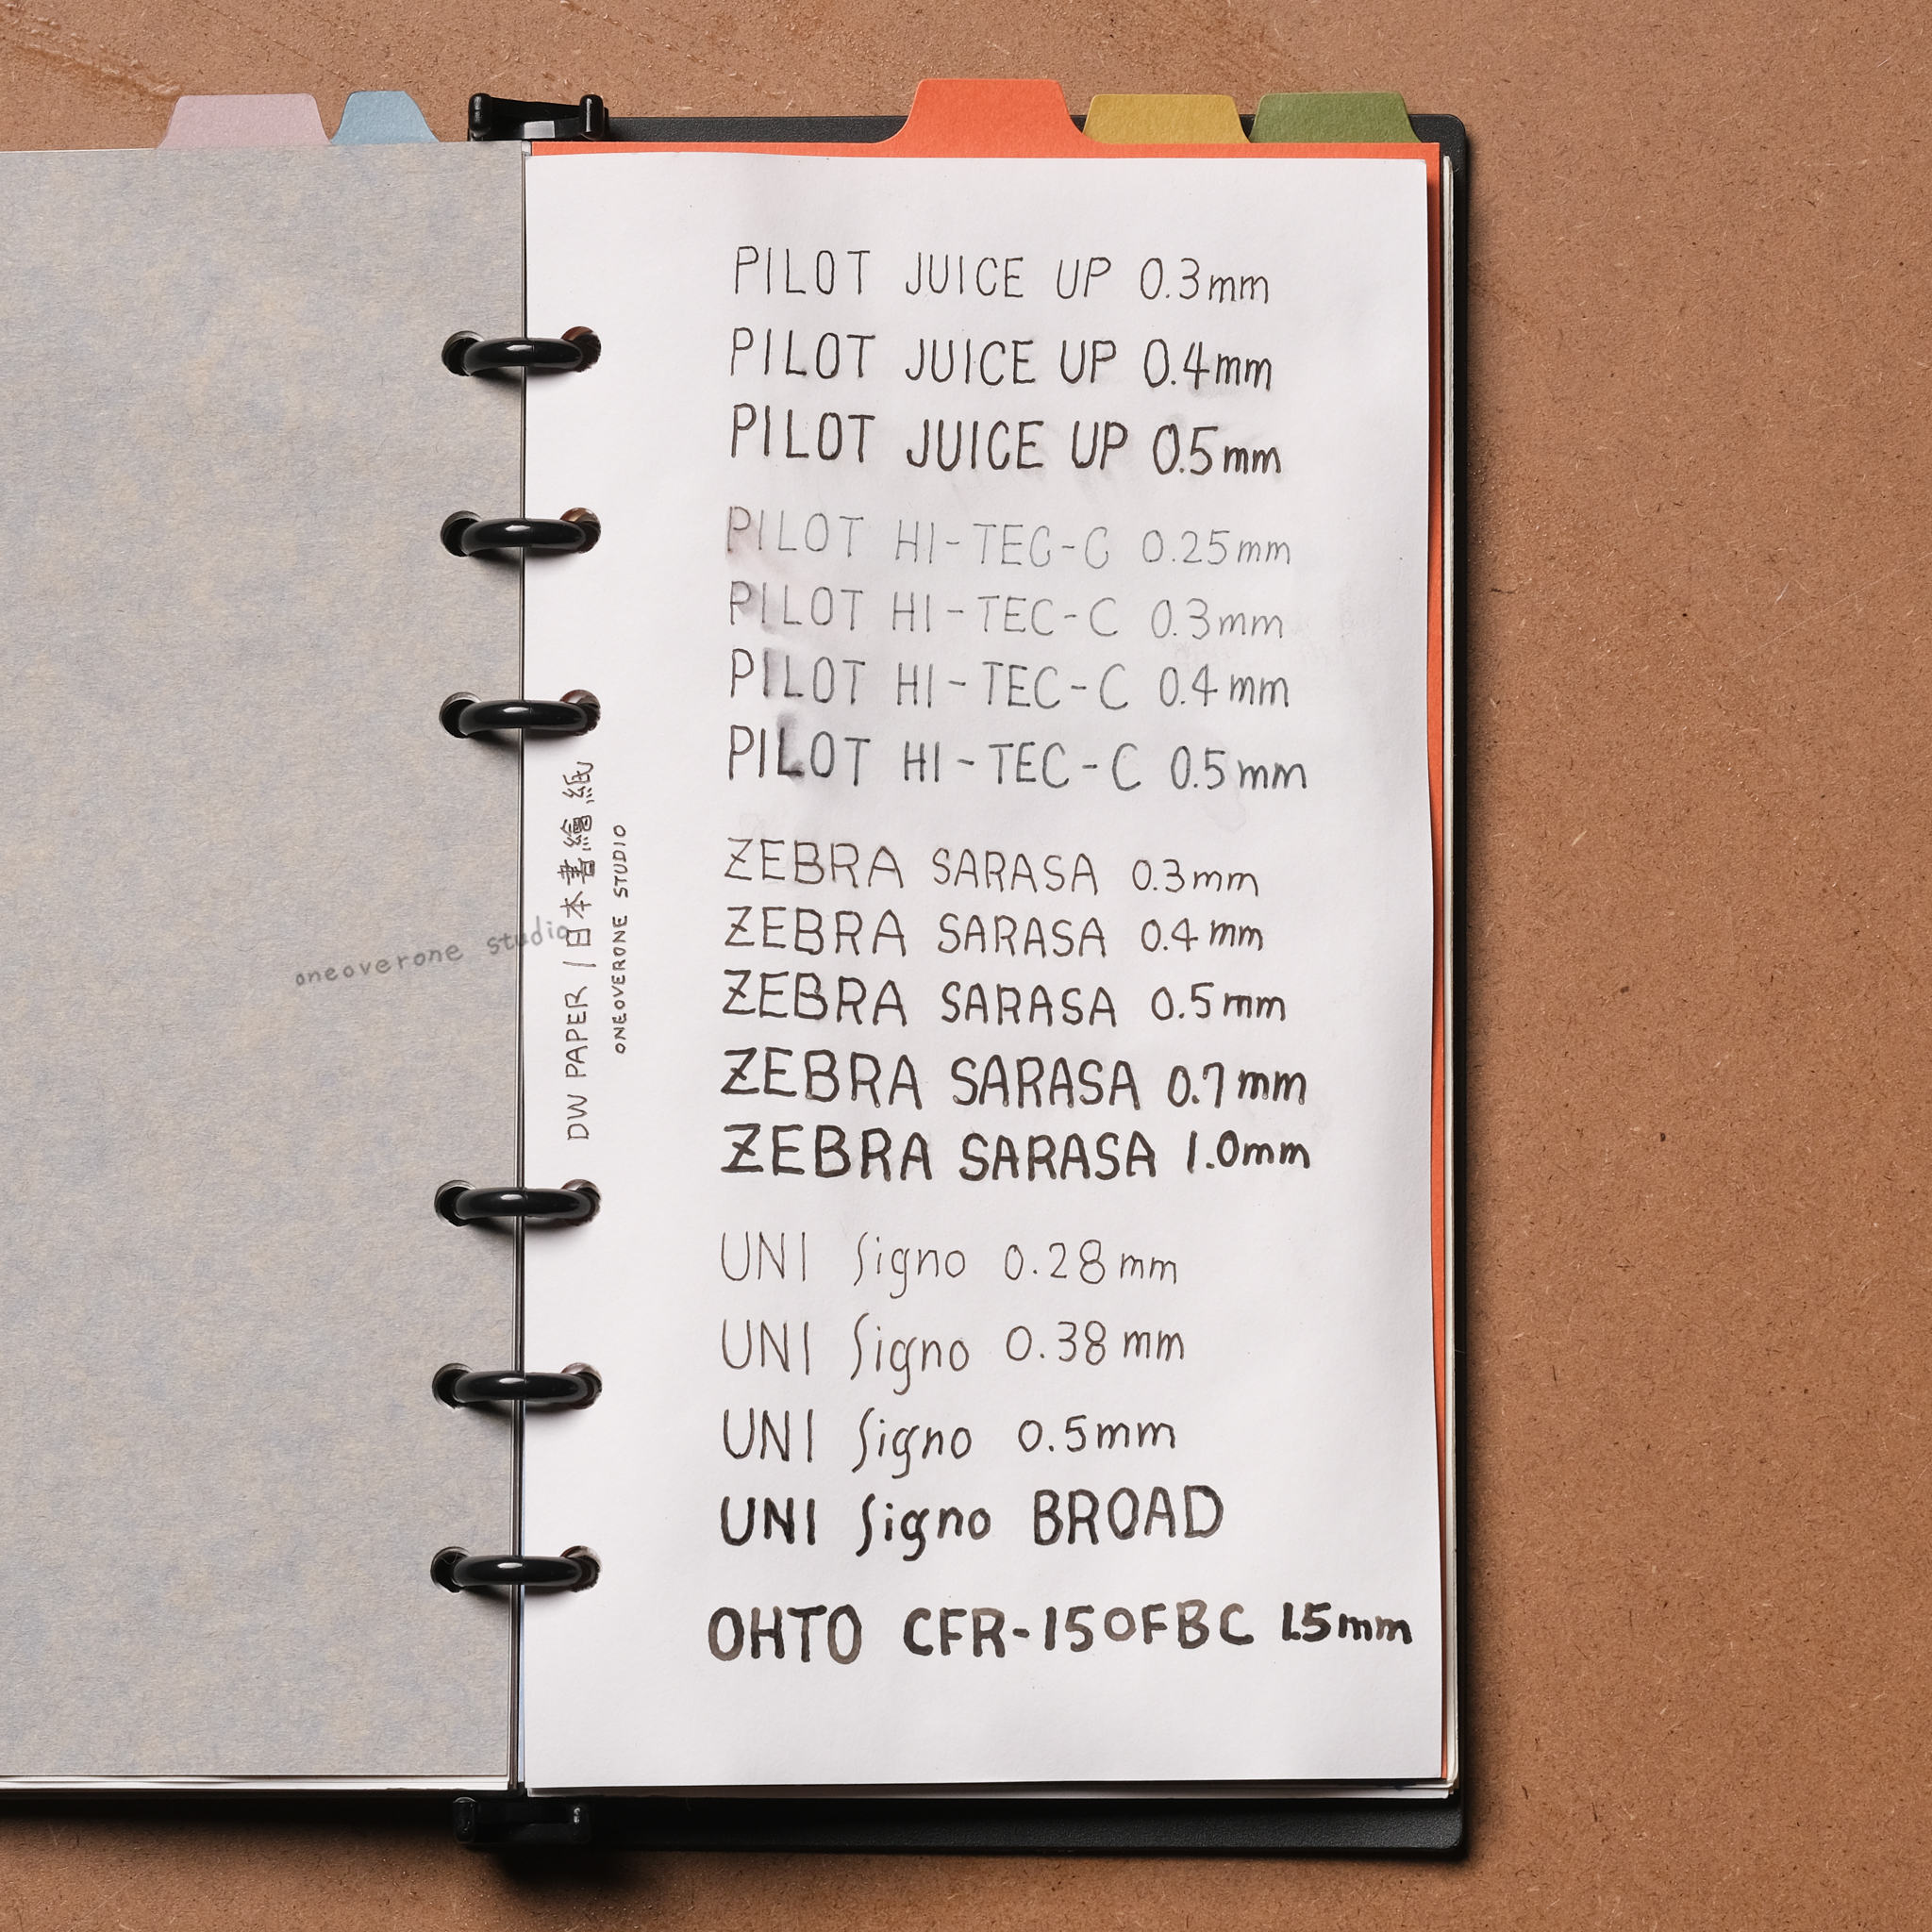 PILOT JUICE UP 0.3mm
PILOT JUICE UP 0.4mm
PILOT JUICE UP 0.5mm
PILOT HI-TEC-C 0.25mm
PILOT HI-TEC-C 0.3mm
PILOT HI-TEC-C 0.4mm
PILOT HI-TEC-C 0.5mm
ZEBRA SARASA 0.3mm
ZEBRA SARASA 0.4mm
ZEBRA SARASA 0.5mm
ZEBRA SARASA 0.7mm
ZEBRA SARASA 1.0mm
UNI Signo 0.28mm
UNI Signo 0.38mm
UNI Signo 0.5mm
UNI Signo BROAD
OHTO CFR-150FBC 1.5mm
DW PAPER / 日本書繪紙
ONEOVERONE STUDIO
oneoverone studio